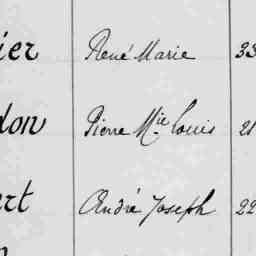 ier René Marie 33
don Pierre Mie Louis 21
ert André Joseph 22